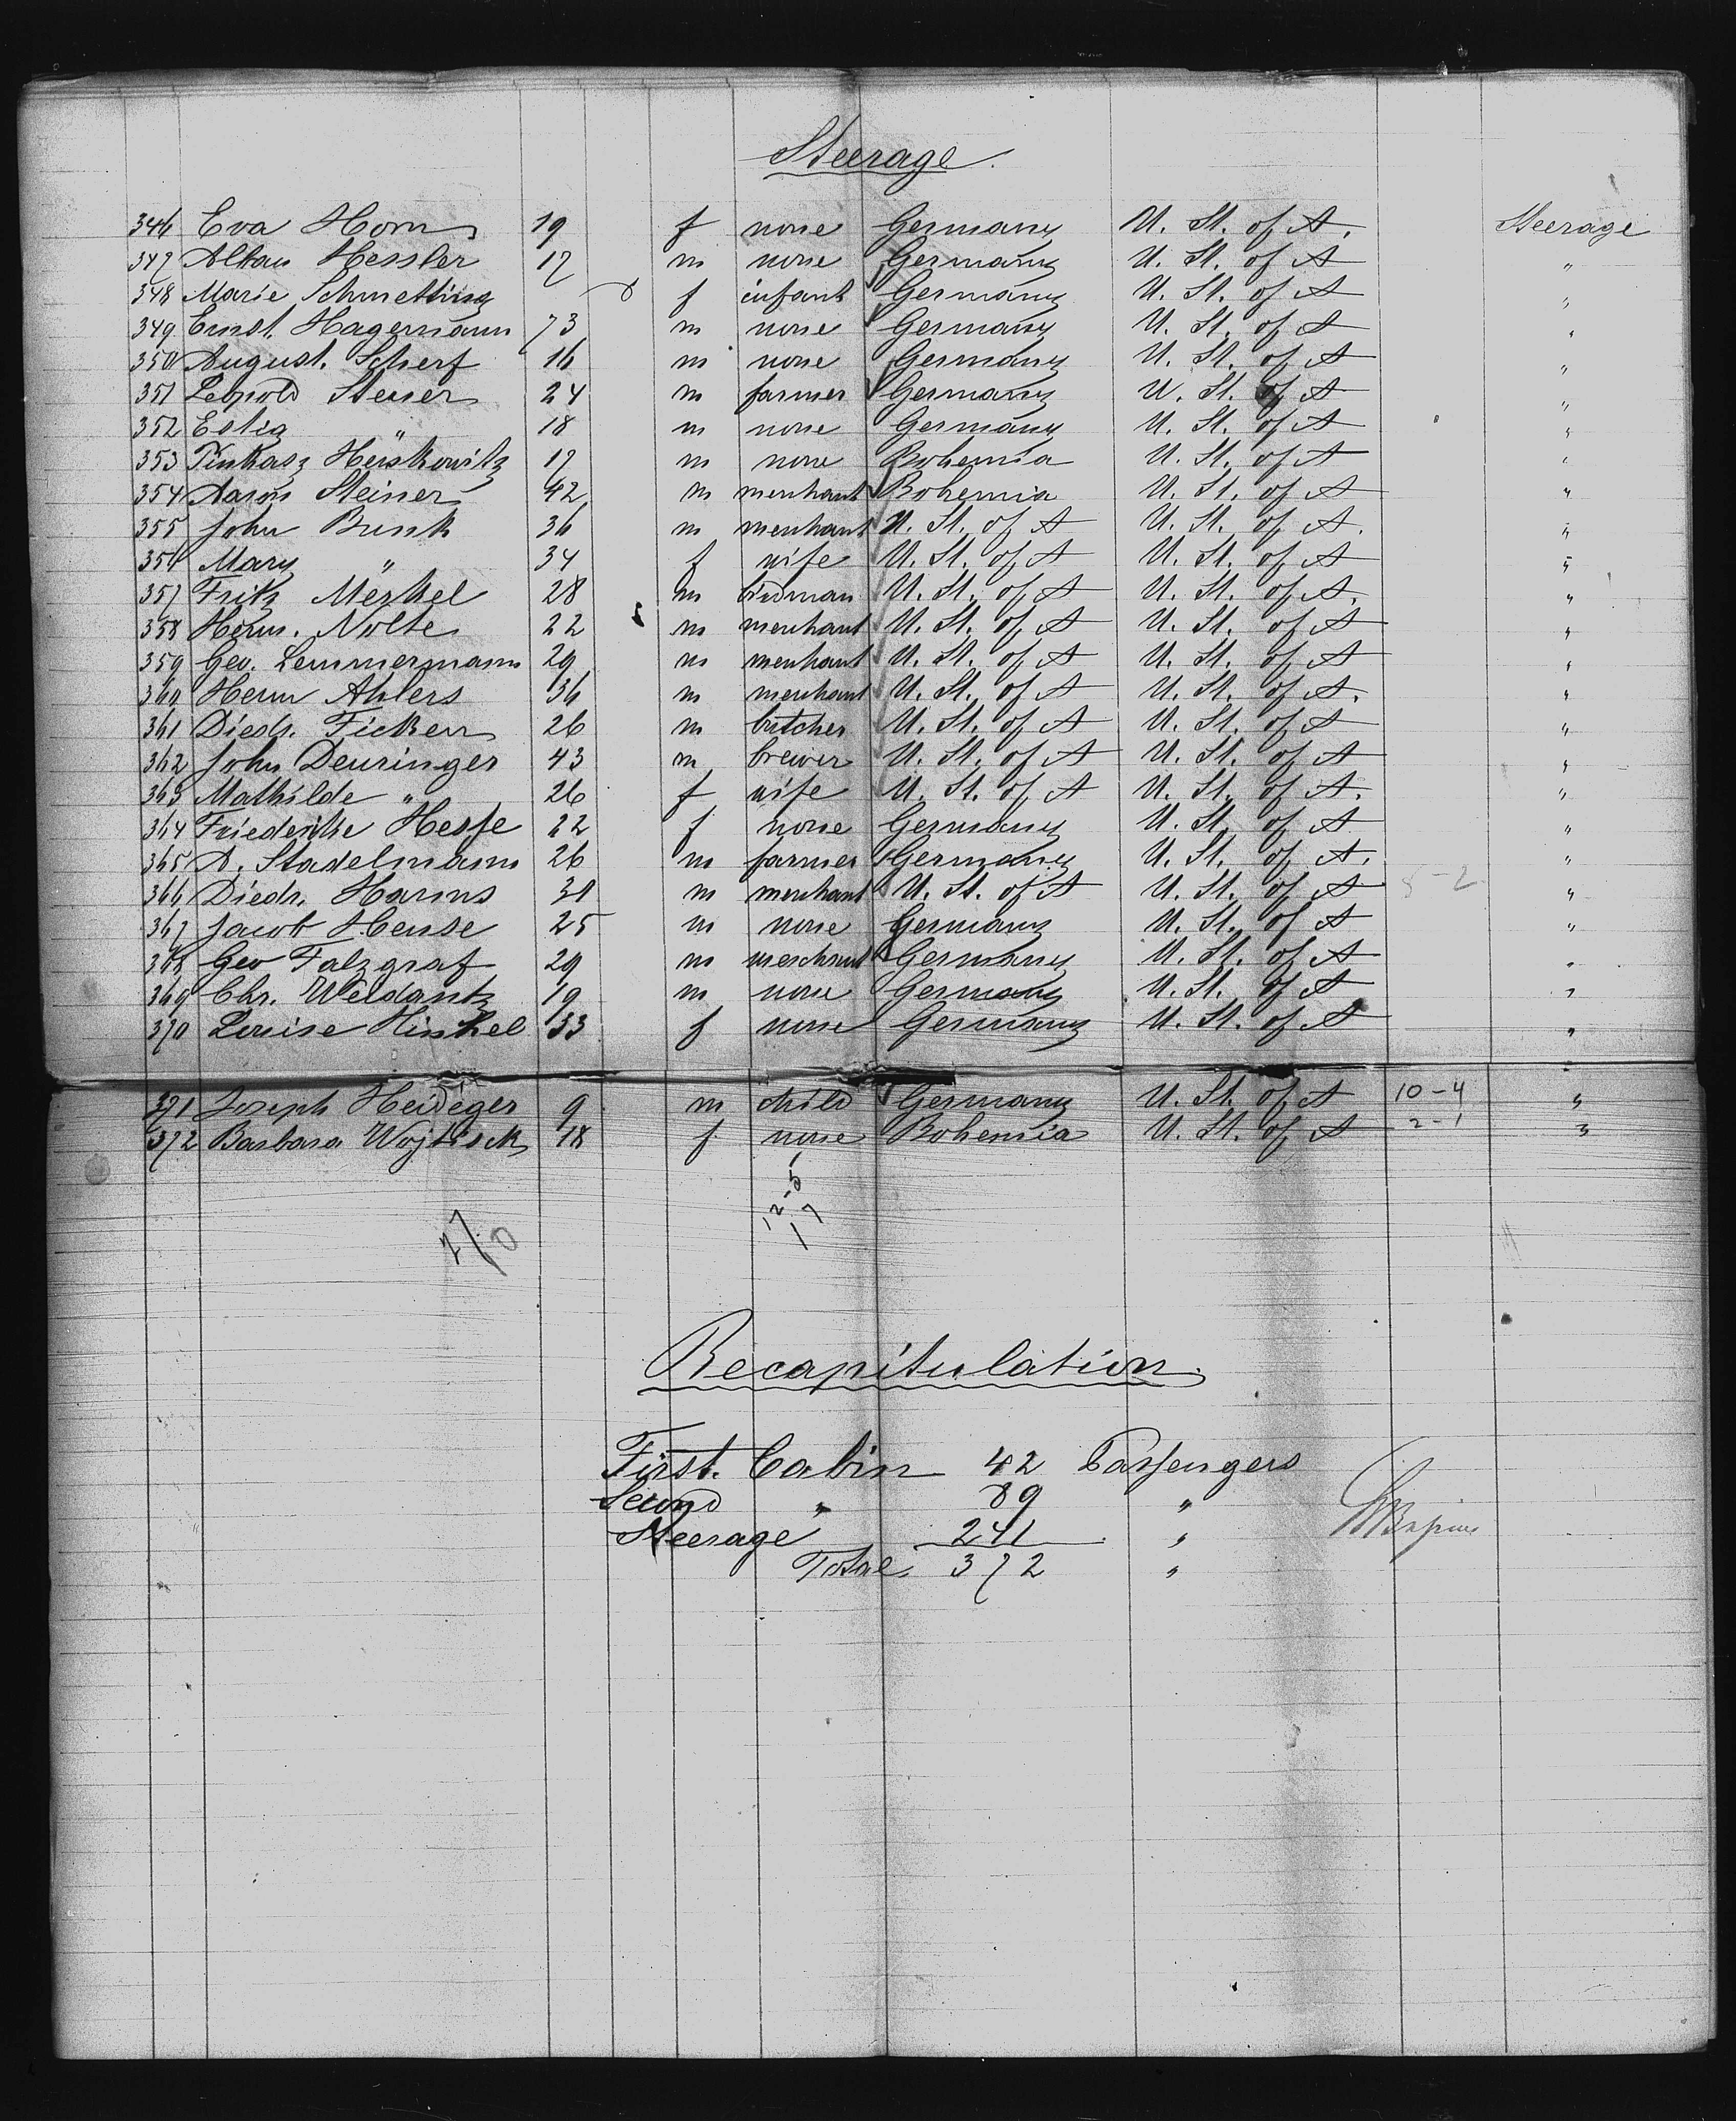 Steerage.
346 Eva Horn 19 f none Germany U. St. of A. Steerage
347 Alban Hessler 17 m none Germany U. St. of A "
348 Marie Schmetting f infant Germany U. St. of A "
349 Ernst. Hagemann 73 m none Germany U. St. of A "
350 August. Scherf 16 m none Germany U. St. of A "
351 Leopold Steuer 24 m farmer Germany U. St. of A "
352 " 18 m none Germany U. St. of A "
353 Pinkasz Herskowitz 17 m none Bohemia U. St. of A "
354 Aaron Steiner 42 m merchant Bohemia U. St. of A "
355 John Bunk 36 m merchant U. St. of A U. St. of A. "
356 Mary " 34 f wife U. St. of A U. St. of A "
357 Fritz Merkel 28 m birdman U. St. of A U. St. of A. "
358 Herm. Nolte 22 m merchant U. St. of A U. St. of A "
359 Geo. Lemmermann 29 m merchant U. St. of A U. St. of A "
360 Herm Ahlers 36 m merchant U. St. of A U. St. of A. "
361 Diedr. Ficken 26 m butcher U. St. of A U. St. of A "
362 John Deuringer 43 m brewer U. St. of A U. St. of A "
363 Mathilde " 26 f wife U. St. of A U. St. of A. "
364 Friederike Hesse 22 f none Germany U. St. of A "
365 A. Stadelmann 26 m farmer Germany U. St. of A. "
366 Diedr. Harms 31 m merchant U. St. of A U. St. of A 5-2 "
367 Jacob Hense 25 m none Germany U. St. of A "
368 Geo Falzgraf 29 m merchant Germany U. St. of A "
369 Chr. Weidantz 19 m none Germany U. St. of A "
370 Louise Hinkel 33 f none Germany U. St. of A "
371 Joseph Heideger 9 m child Germany U. St. of A 10-4 "
372 Barbara Wojtisek 18 f none Bohemia U. St. of A 2-1 "
12-5
17
270
Recapitulation.
First. Cabin 42 Passengers
Second " 89 "
Steerage 241 "
Total. 372 "